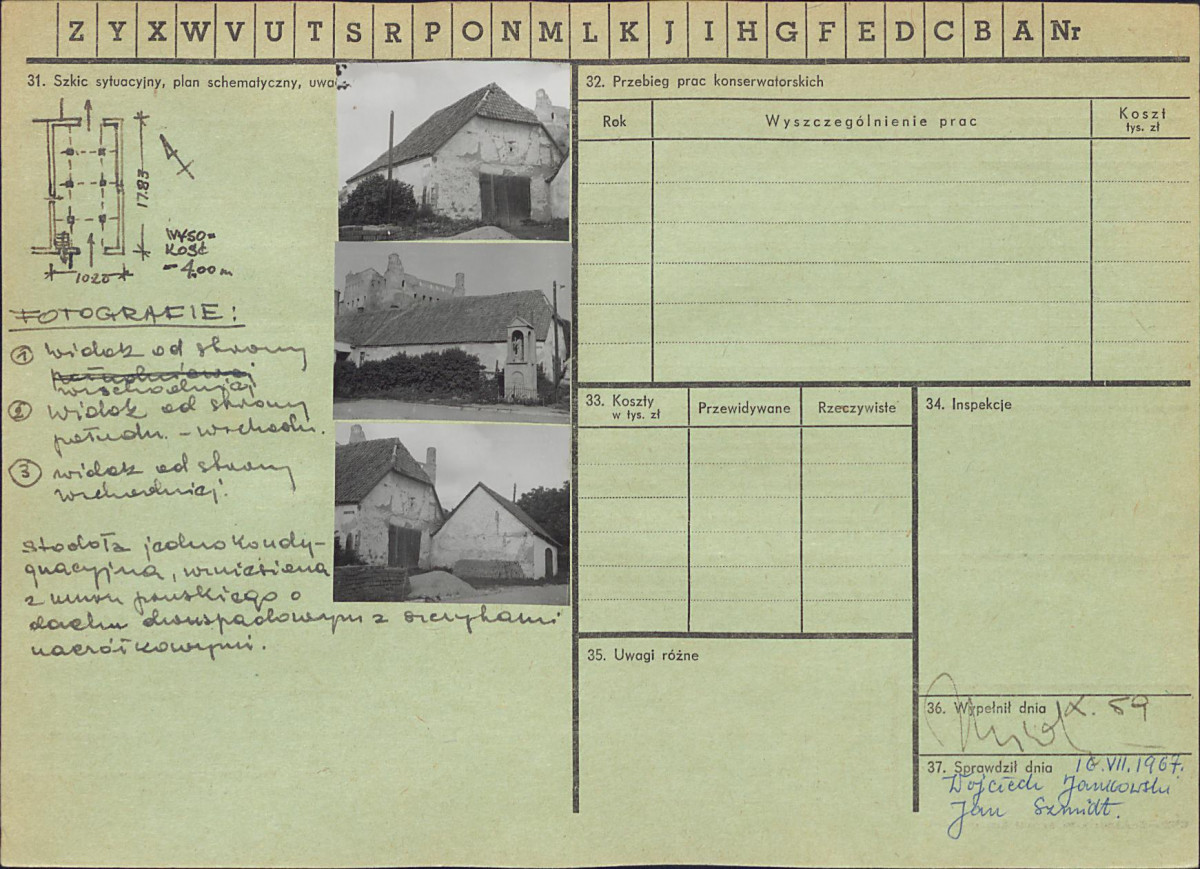 Z Y X W V U T S R P O N M L K J I H G F E D C B A Nr
31. Szkic sytuacyjny, plan schematyczny, uwa
17.83
10.20
WYSO=
KOŚĆ
= 4,00 m
FOTOGRAFIE:
① widok od strony
wschodniej
② widok od strony
połudn. - wschodn.
③ widok od strony
wschodniej.
Stodoła jednokondy-
gnacyjna, wzniesiona
z muru pruskiego o
dachu dwuspadowym z szczytami
naczółkowymi.
32. Przebieg prac konserwatorskich
Rok
Wyszczególnienie prac
Koszt
tys. zł
33. Koszty
w tys. zł
Przewidywane
Rzeczywiste
34. Inspekcje
35. Uwagi różne
36. Wypełnił dnia X. 59
37. Sprawdził dnia 16.VII.1967.
Wojciech Jankowski
Jan Szmidt.